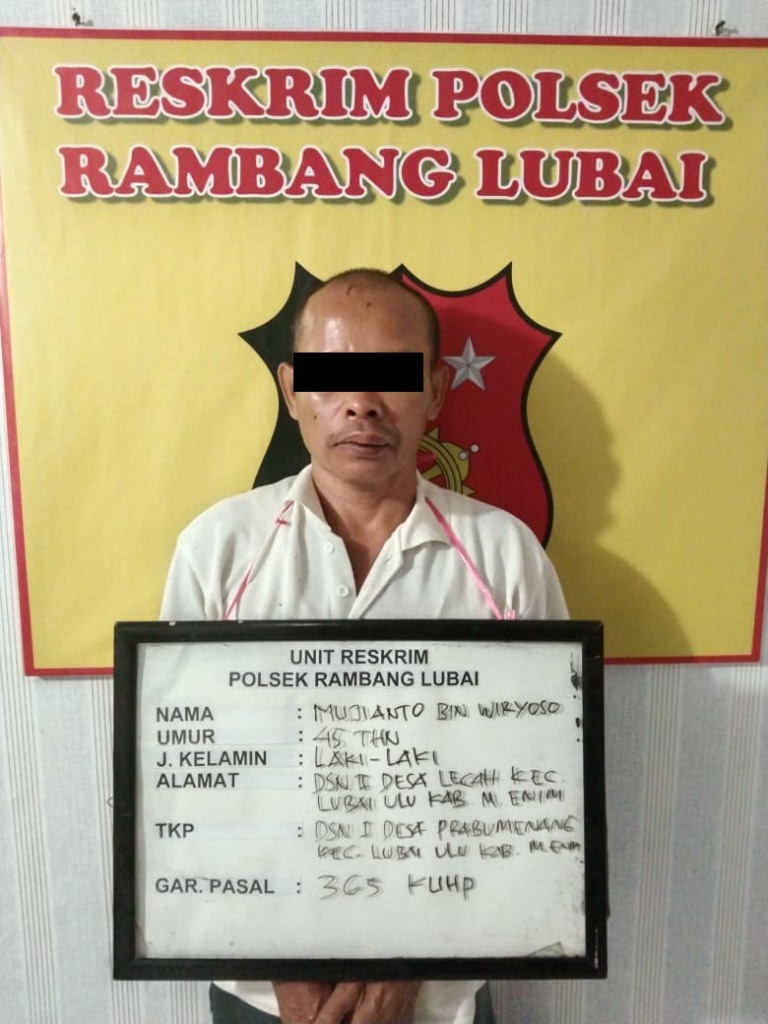 RESKRIM POLSEK
RAMBANG LUBAI
UNIT RESKRIM
POLSEK RAMBANG LUBAI
NAMA : MUJIANTO BIN WIRYOSO
UMUR : 45 THN
J. KELAMIN : LAKI-LAKI
ALAMAT : DSN II DESA LECAH KEC.
LUBAI ULU KAB M. ENIM
TKP : DSN I DESA PRABUMENANG
KEC. LUBAI ULU KAB. M. ENIM
GAR. PASAL : 365 KUHP